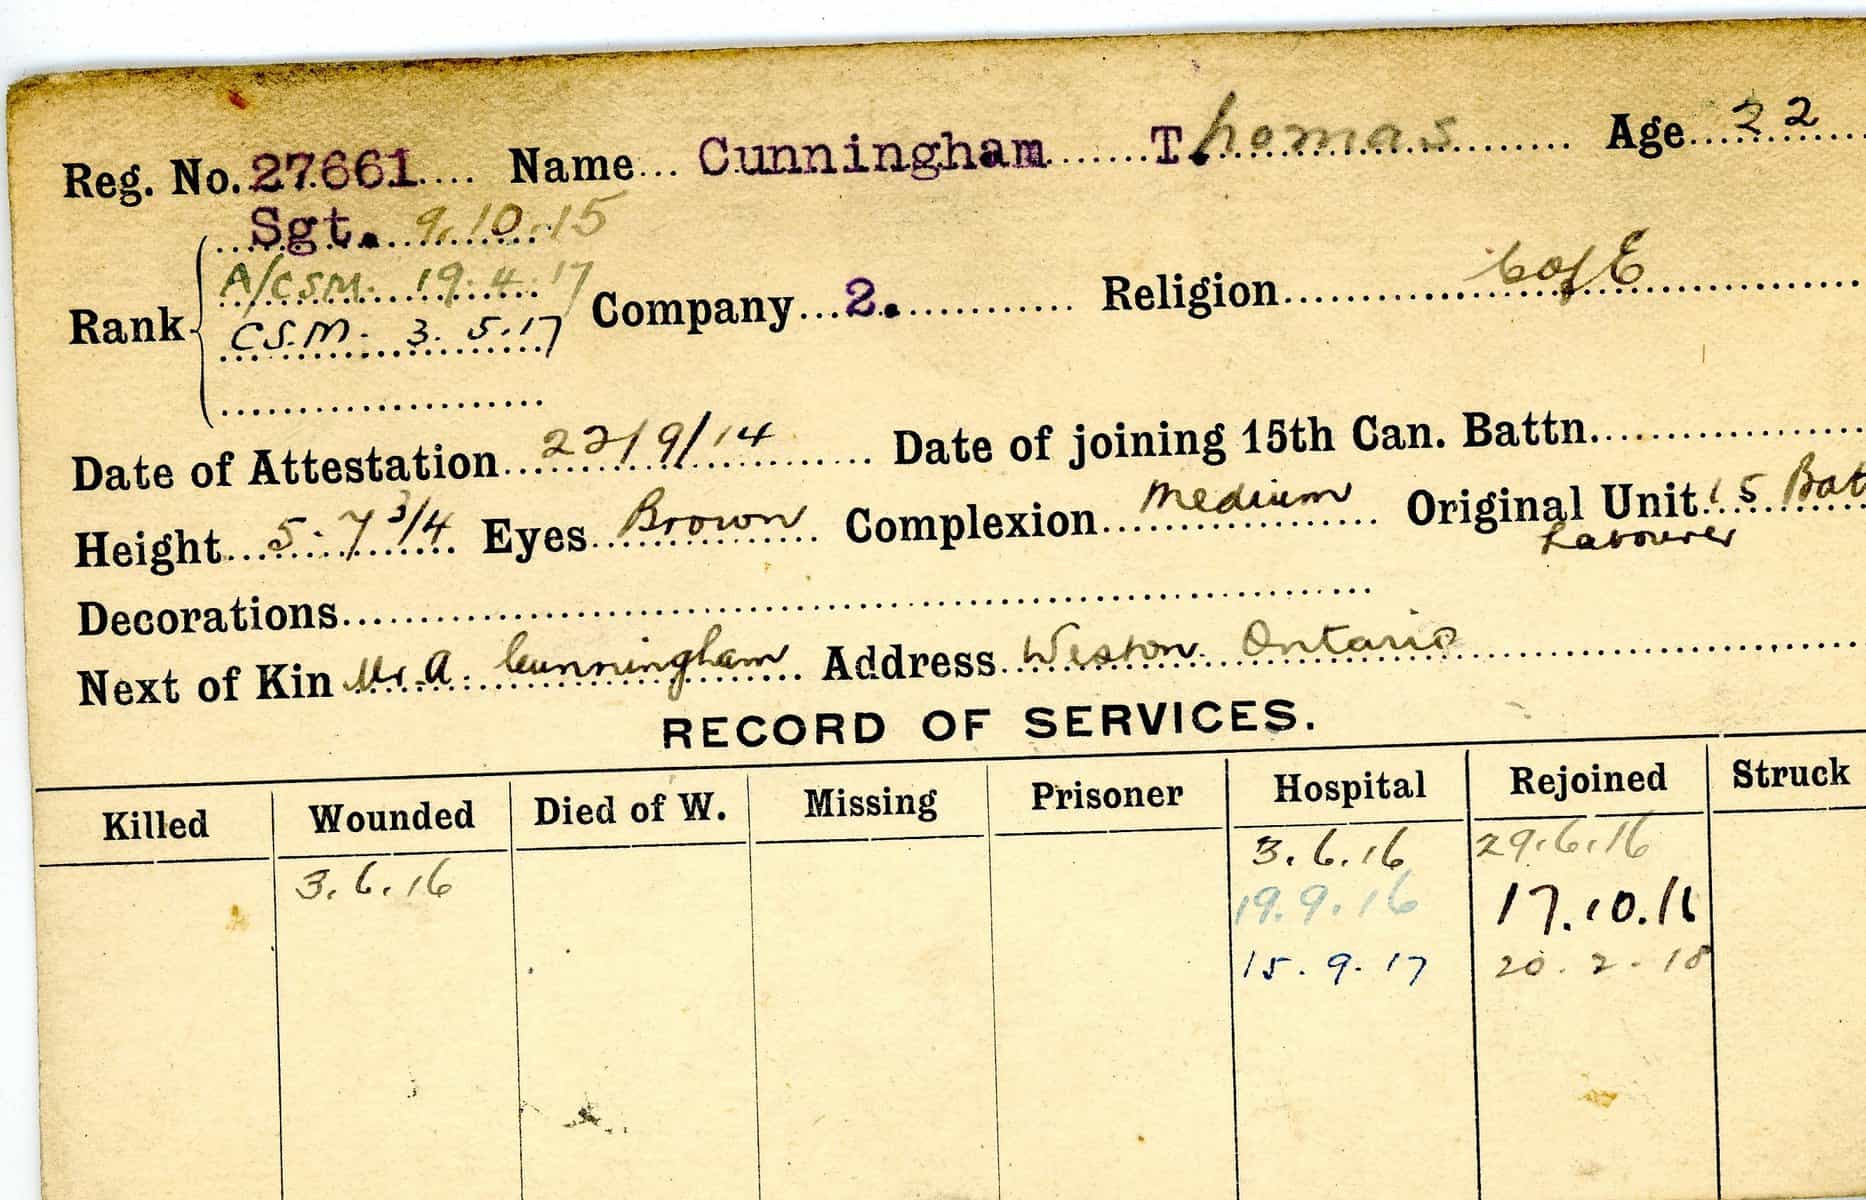 Reg. No. 27661 Name Cunningham T. homas Age 22
Sgt. 9.10.15
A/CSM. 19.4.17
Rank Company 2. Religion C of E
CSM. 3.5.17
Date of Attestation 22/9/14 Date of joining 15th Can. Battn.
Height 5.7 3/4 Eyes Brown Complexion Medium Original Unit 15 Bat
Labourer
Decorations
Next of Kin Mr A. Cunningham Address Weston. Ontario
RECORD OF SERVICES.
Killed Wounded Died of W. Missing Prisoner Hospital Rejoined Struck
3.6.16 3.6.16 29.6.16
19.9.16 17.10.16
15.9.17 20.2.18